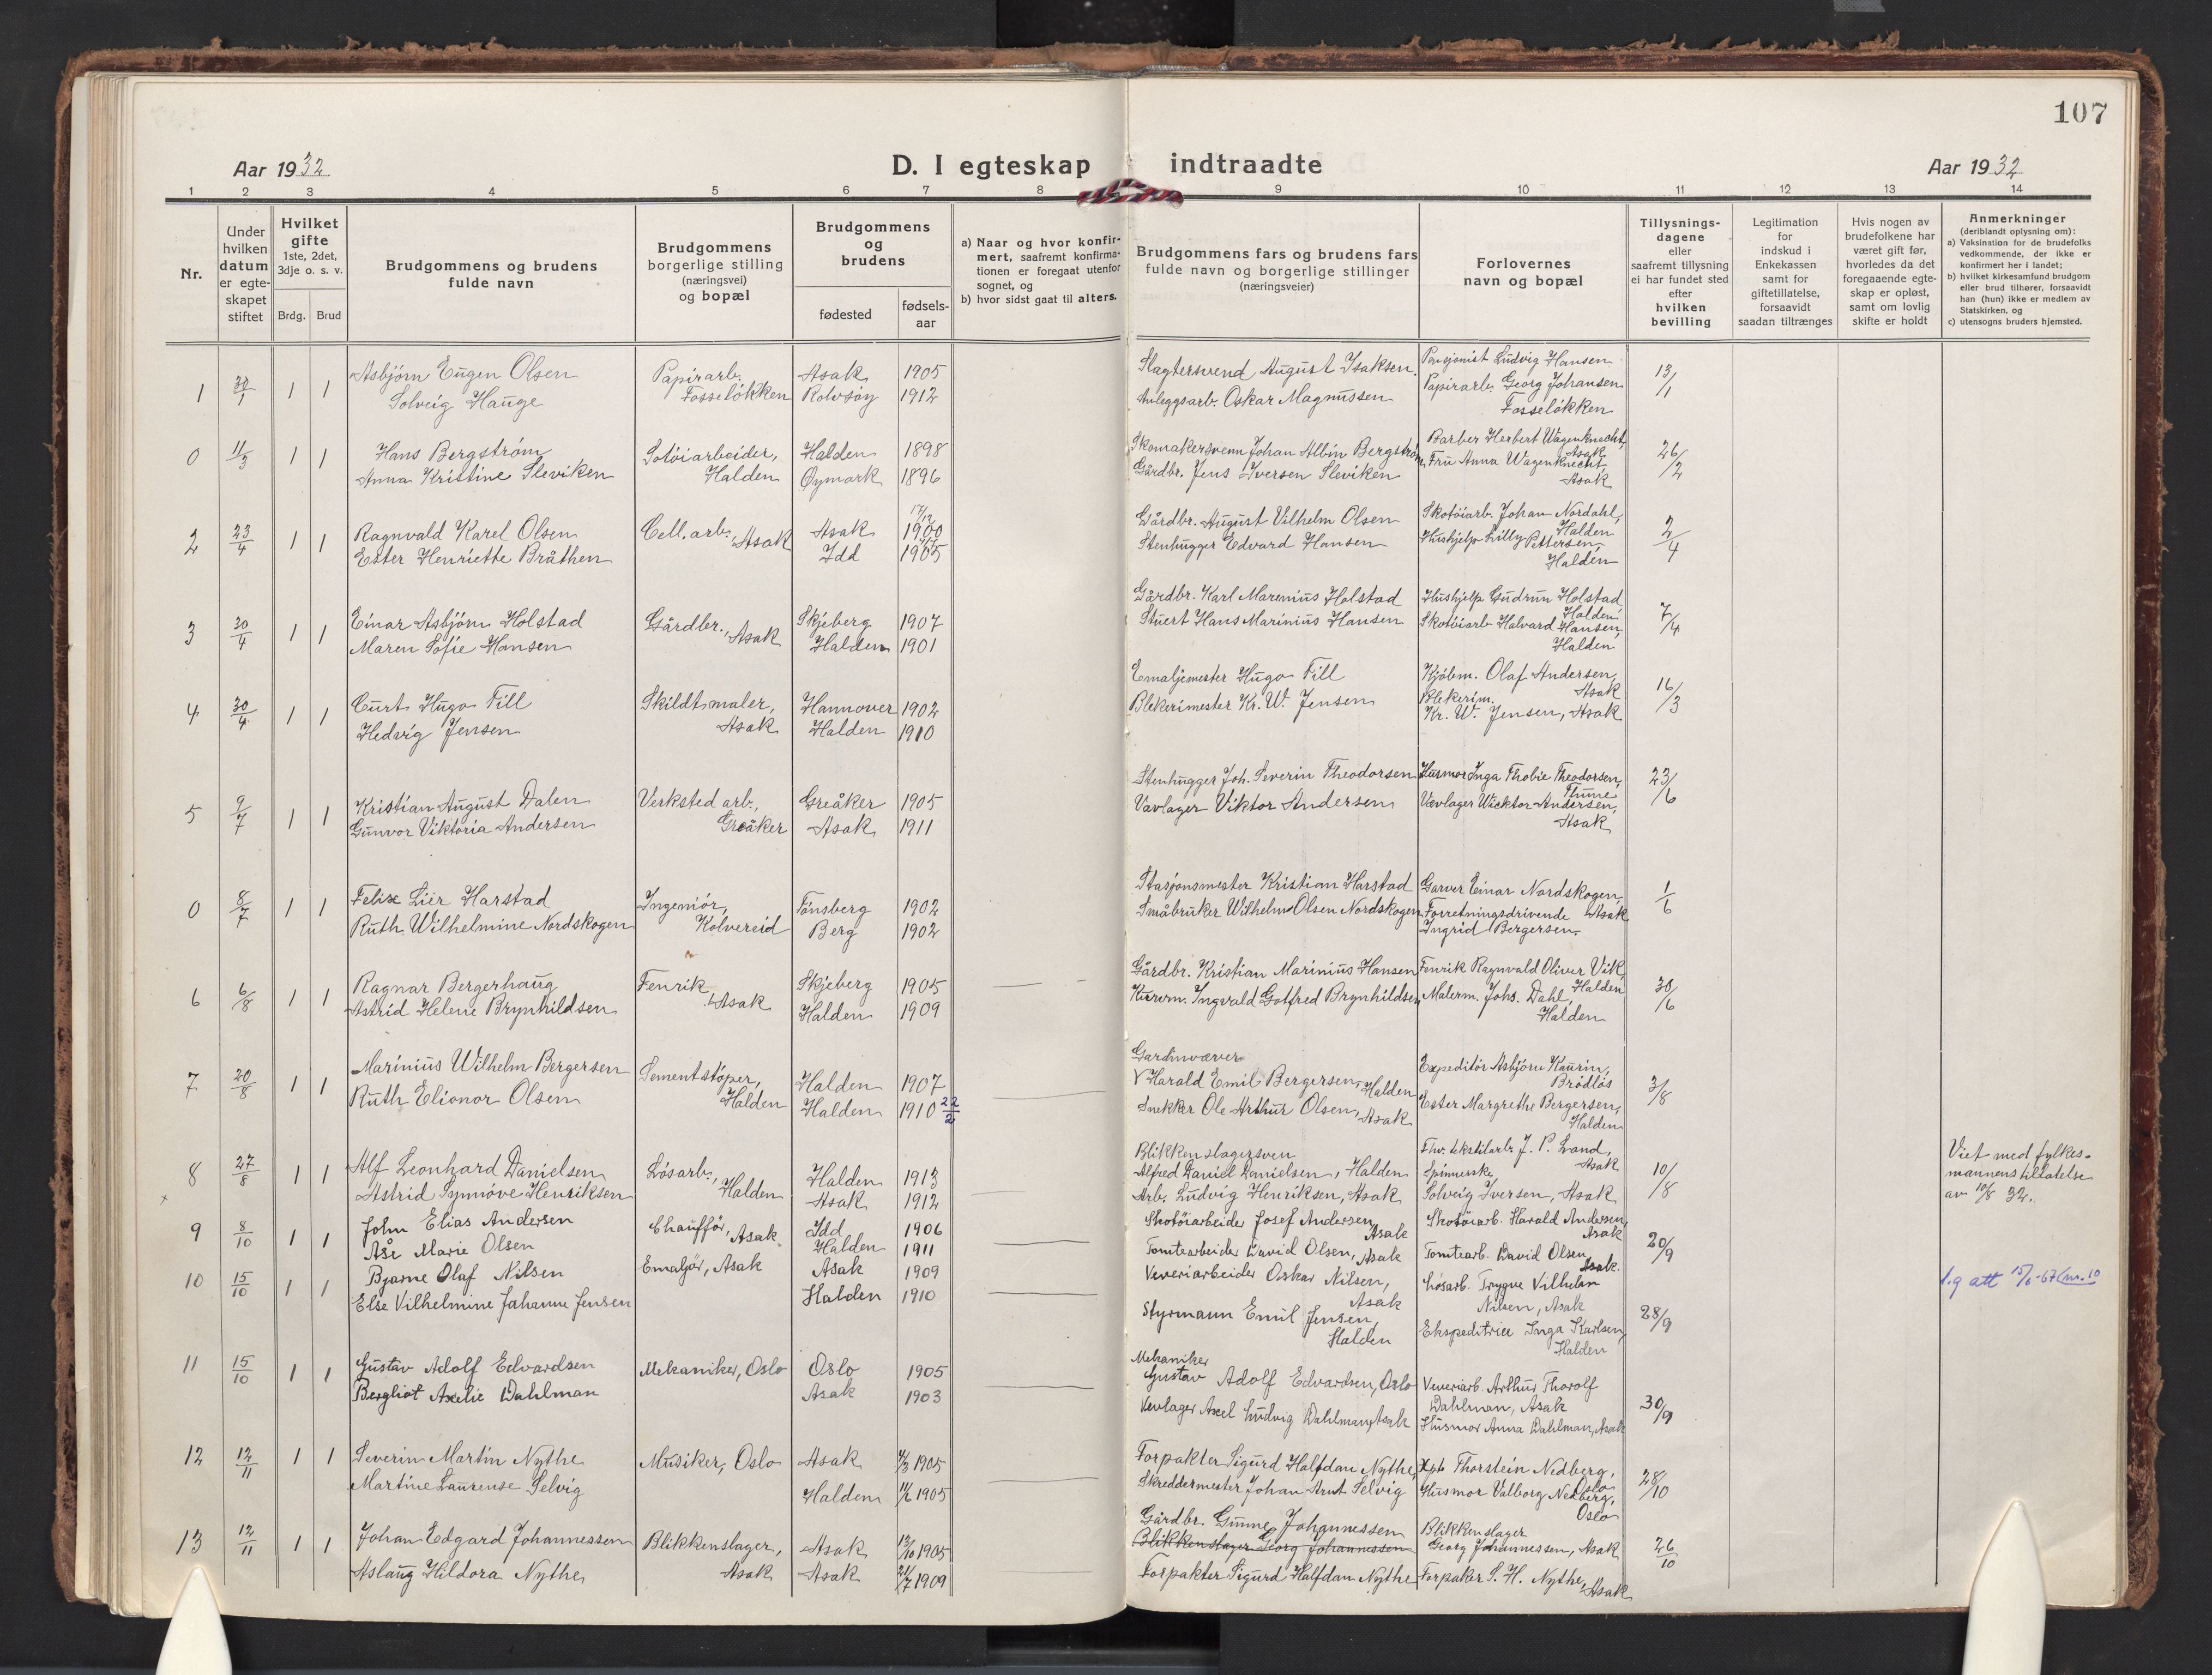 107
Aar 1932
D. I egteskap indtraadte
Aar 1932
1 2 3 4 5 6 7 8 9 10 11 12 13 14
Nr.
Under
hvilken
datum
er egte-
skapet
stiftet
Hvilket
gifte
1ste, 2det,
3dje o. s. v.
Brdg. Brud
Brudgommens og brudens
fulde navn
Brudgommens
borgerlige stilling
(næringsvei)
og bopæl
Brudgommens
og
brudens
fødested
fødsels-
aar
a) Naar og hvor konfir-
mert, saafremt konfirma-
tionen er foregaat utenfor
sognet, og
b) hvor sidst gaat til alters.
Brudgommens fars og brudens fars
fulde navn og borgerlige stillinger
(næringsveier)
Forlovernes
navn og bopæl
Tillysnings-
dagene
eller
saafremt tillysning
ei har fundet sted
efter
hvilken
bevilling
Legitimation
for
indskud i
Enkekassen
samt for
giftetillatelse,
forsaavidt
saadan tiltrænges
Hvis nogen av
brudefolkene har
været gift før,
hvorledes da det
foregaaende egte-
skap er opløst,
samt om lovlig
skifte er holdt
Anmerkninger
(deriblandt oplysning om):
a) Vaksination for de brudefolks
vedkommende, der ikke er
konfirmert her i landet;
b) hvilket kirkesamfund brudgom
eller brud tilhører, forsaavidt
han (hun) ikke er medlem av
Statskirken, og
c) utensogns bruders hjemsted.
1 30/1 1 1 Asbjörn Eugen Olsen Papirarb. Asak 1905 Slagtersvend August Isaksen. Pensjonist Ludvig Hansen 13/1
Solveig Hauge Fosselökken Rolvsöy 1912 Anleggsarb. Oskar Magnussen Papirarb. Georg Johansen
Fosselökken
0 11/3 1 1 Hans Bergström Sotöiarbeider, Halden 1898 Skomakersvenn Johan Albin Bergström, Barber Herbert Wagenknecht, 26/2
Asak
Anna Kristine Sleviken Halden Öymark 1896 Gårdbr. Jens Iversen Sleviken Fru Anna Wagenknecht,
Asak
2 23/4 1 1 Ragnvald Karel Olsen Cell. arb., Asak Asak 1900 Gårdbr. August Vilhelm Olsen Skotöiarb. Johan Nordahl, 2/4
Halden
Ester Henriette Bråthen Idd 1905 Stenhugger Edvard Hansen Hushjelp Lilly Pettersen,
Halden
3 30/4 1 1 Einar Asbjörn Holstad Gårdbr., Asak Skjeberg 1907 Gårdbr. Karl Marenius Holstad Hushjelp Gudrun Holstad 7/4
Halden
Maren Sofie Hansen Halden 1901 Stuert Hans Marinius Hansen Skotöiarb. Halvard Hansen,
Halden
4 30/4 1 1 Curt Hugo Till Skildtmaler, Hannover 1902 Emaljemester Hugo Till Kjöbm. Olaf Andersen, 16/3
Asak
Hedvig Jensen Asak Halden 1910 Blekerimester Kr. W. Jensen Blekerim.
Kr. W. Jensen, Asak
5 9/7 1 1 Kristian August Dalen Verksted arb., Greåker 1905 Stenhugger Joh. Severin Theodorsen Husmor Inga Thobie Theodorsen, 23/6
Thune
Gunvor Viktoria Andersen Greåker Asak 1911 Vavlager Viktor Andersen Vævlager Wicktor Andersen,
Asak
0 8/7 1 1 Felix Lier Harstad Ingeniör, Tönsberg 1902 Stasjonsmester Kristian Harstad Garver Einar Nordskogen, 1/6
Asak
Ruth Wilhelmine Nordskogen Kolvereid Berg 1902 Småbruker Wilhelm Olsen Nordskogen Forretningsdrivende
Ingrid Bergersen.
6 6/8 1 1 Ragnar Bergerhaug Fenrik, Skjeberg 1905 Gårdbr. Kristian Marinius Hansen Fenrik Ragnvald Oliver Vik, 30/6
Halden
Astrid Helene Brynhildsen Asak Halden 1909 Kurvm. Ingvald Gotfred Brynhildsen Malerm. Johs. Dahl,
Halden
7 20/8 1 1 Marinius Wilhelm Bergersen Sementstöper, Halden 1907 Gardinvæver
Harald Emil Bergersen, Halden Expeditör Asbjörn Kaurin, 3/8
Brödlös
Ruth Elionor Olsen Halden Halden 1910 22/2 Snekker Ole Arthur Olsen, Asak Ester Margrethe Bergersen,
Halden
8 27/8 1 1 Alf Leonhard Danielsen Lösarb., Halden 1913 Blikkenslagersven
Alfred Daniel Danielsen, Halden Fhv. tekstilarb. J. P. Land, 10/8 Viet med fylkes-
Asak mannens tillatelse
Astrid Synnöve Henriksen Halden Asak 1912 Arb. Ludvig Henriksen, Asak Spinnerske av 10/8 32.
Solveig Iversen, Asak
9 8/10 1 1 John Elias Andersen Chaufför, Asak Idd 1906 Skotöiarbeider Josef Andersen, Asak Skotöiarb. Harald Andersen, 20/9
Asak
Åse Marie Olsen Halden 1911 Tomtearbeider David Olsen, Asak Tomtearb. David Olsen,
Asak.
10 15/10 1 1 Bjarne Olaf Nilsen Emaljör, Asak Asak 1909 Veveriarbeider Oskar Nilsen, Asak Lösarb. Trygve Vilhelm 28/9 l.g att 15/6-67 (nr. 10
Nilsen, Asak
Else Vilhelmine Johanne Jensen Halden 1910 Styrmann Emil Jensen, Halden Ekspeditrice Inga Karlsen,
Halden
11 15/10 1 1 Gustav Adolf Edvardsen Mekaniker, Oslo Oslo 1905 Mekaniker
Gustav Adolf Edvardsen, Oslo Veveriarb. Arthur Thorolf 30/9
Dahlman, Asak
Bergliot Axelie Dahlman Asak 1903 Vevlager Axel Ludvig Dahlman, Asak Husmor Anna Dahlman, Asak
12 12/11 1 1 Severin Martin Nythe Musiker, Oslo Asak 4/3 1905 Forpakter Sigurd Halfdan Nythe, Thorstein Nedberg, 28/10
Oslo
Martine Laurense Selvig Halden 11/6 1905 Skreddermester Johan Arnt Selvig Husmor Valborg Nedberg,
Oslo
13 12/11 1 1 Johan Edgard Johannessen Blikkenslager, Asak 13/10 1905 Gårdbr. Gunne Johannessen Blikkenslager 26/10
Blikkenslager Georg Johannessen Georg Johannessen, Asak
Aslaug Hildora Nythe Asak Asak 21/7 1909 Forpakter Sigurd Halfdan Nythe Forpaker S. H. Nythe, Asak